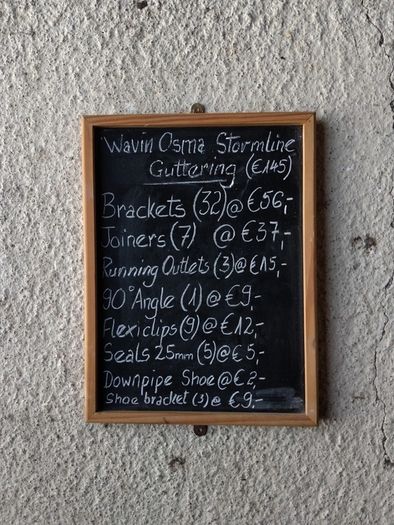 Wavin Osma Stormline
Guttering (€145)
Brackets (32)@€56,-
Joiners (7) @ €37,-
Running Outlets (3)@€15,-
90° Angle (1)@€9,-
Flexiclips (9)@€12,-
Seals 25mm (5)@€5,-
Downpipe Shoe@€2,-
Shoe bracket (3)@ €9,-